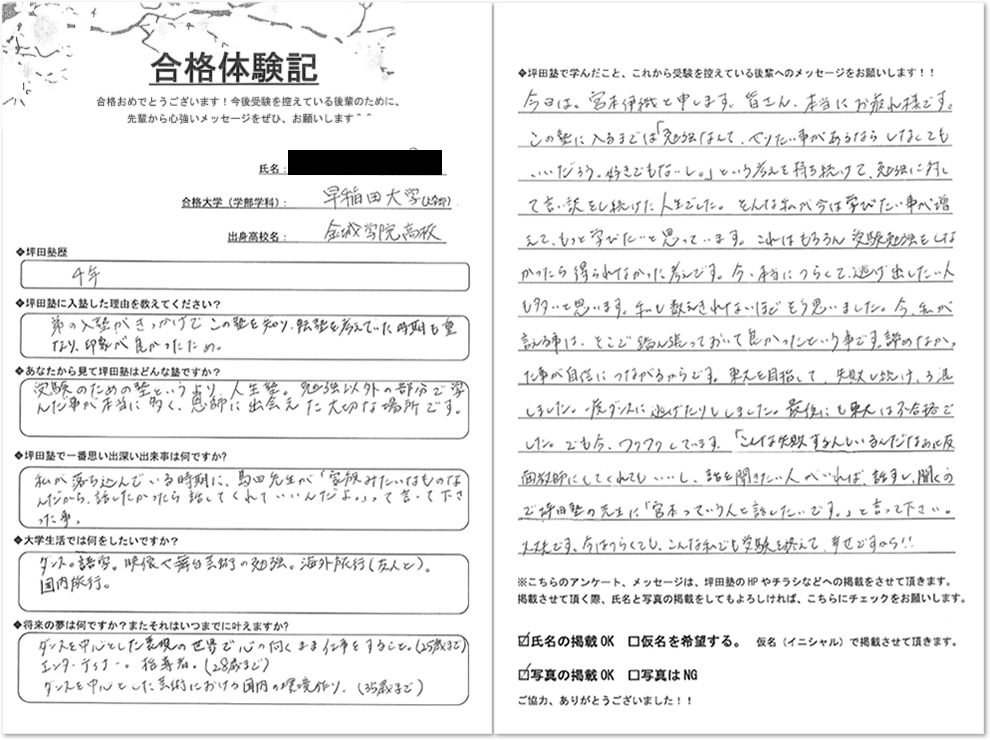 合格体験記
合格おめでとうございます!今後受験を控えている後輩のために、
先輩から心強いメッセージをぜひ、お願いします＾＾
氏名:
合格大学(学部学科): 早稲田大学
出身高校名: 金城学院高校
❖坪田塾歴
4年
❖坪田塾に入塾した理由を教えてください?
弟の入塾がきっかけでこの塾を知り、転塾を考えていた時期も重
なり、印象が良かったため。
❖あなたから見て坪田塾はどんな塾ですか?
受験のための塾というより、人生塾。勉強以外の部分で学
んだ事が本当に多く、恩師に出会えた大切な場所です。
❖坪田塾で一番思い出深い出来事は何ですか?
私が落ち込んでいる時期に、島田先生が「家族みたいなものな
んだから、話したかったら話してくれていいんだよ。」って言って下さ
った事。
❖大学生活では何をしたいですか?
ダンス。語学。映像や舞台芸術の勉強。海外旅行(友人と)。
国内旅行。
❖将来の夢は何ですか?またそれはいつまでに叶えますか?
ダンスを中心とした表現の世界で心の向くまま仕事をすること。(25歳まで)
エンターテイナー。指導者。(28歳まで)
ダンスを中心とした芸術における国内の環境作り。(35歳まで)
❖坪田塾で学んだこと、これから受験を控えている後輩へのメッセージをお願いします!!
今日は。宮本伊織と申します。皆さん、本当にお疲れ様です。
この塾に入るまでは「勉強なんて、やりたい事があるならしなくても
いいだろう。好きでもないし。」という考えを持ち続けて、勉強に対し
て言い訳をし続けた人生でした。そんな私が今は学びたい事が増
えて、もっと学びたいと思っています。これはもちろん受験勉強をしな
かったら得られなかった考えです。今、本当につらくて、逃げ出したい人
も多いと思います。私も数えきれないほどそう思いました。今、私が
言える事は、そこで踏ん張っておいて良かったという事です。諦めなかっ
た事が自信につながるからです。東大を目指して、失敗し続け、3浪
しました。一度ダンスに逃げたりもしました。最後にも東大は不合格で
した。でも今、ワクワクしています。「こんな失敗する人もいるんだなあ」と反
面教師にしてくれてもいいし、話を聞きたい人がいれば、話すし、聞くの
で坪田塾の先生に「宮本っていう人と話したいです。」と言って下さい。
大丈夫です、今はつらくても、こんな私でも受験を終えて、幸せですから!!
※こちらのアンケート、メッセージは、坪田塾のHPやチラシなどへの掲載をさせて頂きます。
掲載させて頂く際、氏名と写真の掲載をしてもよろしければ、こちらにチェックをお願いします。
☑氏名の掲載OK □仮名を希望する。 仮名(イニシャル)で掲載させて頂きます。
☑写真の掲載OK □写真はNG
ご協力、ありがとうございました!!